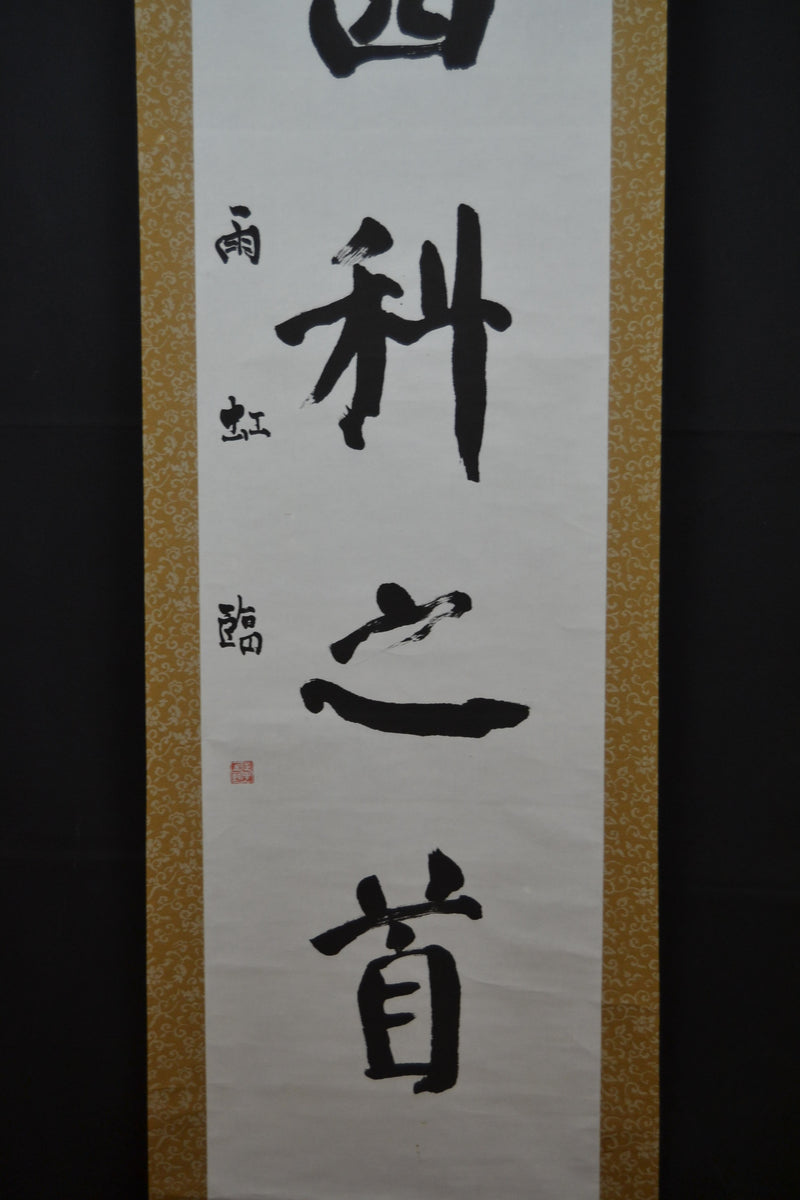 科之首
雨虹臨